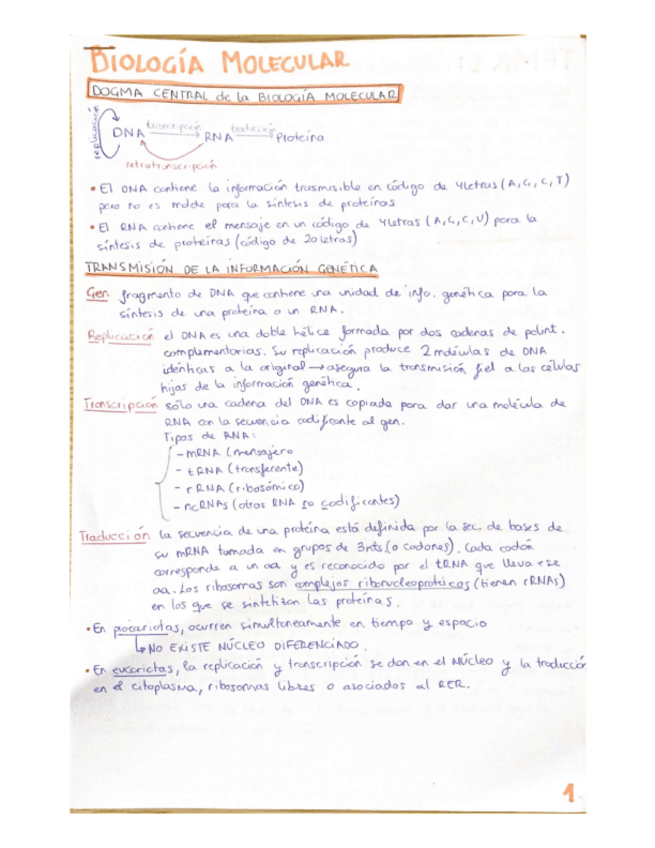 BIOLOGÍA MOLECULAR
DOGMA CENTRAL de la BIOLOGÍA MOLECULAR
replicación
DNA transcripción RNA traducción Proteína
retrotranscripción
• El DNA contiene la información trasmisible en código de 4 letras (A, G, C, T)
pero no es molde para la síntesis de proteínas
• El RNA contiene el mensaje en un código de 4 letras (A, G, C, U) para la
síntesis de proteínas (código de 20 letras)
TRANSMISIÓN DE LA INFORMACIÓN GENÉTICA
Gen fragmento de DNA que contiene una unidad de info. genética para la
síntesis de una proteína o un RNA.
Replicación el DNA es una doble hélice formada por dos cadenas de polint.
complementarias. Su replicación produce 2 moléculas de DNA
idénticas a la original → asegura la transmisión fiel a las células
hijas de la información genética.
Transcripción sólo una cadena del DNA es copiada para dar una molécula de
RNA con la secuencia codificante al gen.
Tipos de RNA:
- mRNA (mensajero
- tRNA (transferente)
- rRNA (ribosómico)
- ncRNAs (otros RNA no codificantes)
Traducción la secuencia de una proteína está definida por la sec. de bases de
su mRNA tomada en grupos de 3nts (o codones). Cada codón
corresponde a un aa y es reconocido por el tRNA que lleva ese
aa. Los ribosomas son complejos ribonucleoproteicos (tienen rRNAs)
en los que se sintetizan las proteínas.
• En procariotas, ocurren simultáneamente en tiempo y espacio
↳ NO EXISTE NÚCLEO DIFERENCIADO.
• En eucariotas, la replicación y transcripción se dan en el NÚCLEO y la traducción
en el citoplasma, ribosomas libres o asociados al RER.
1